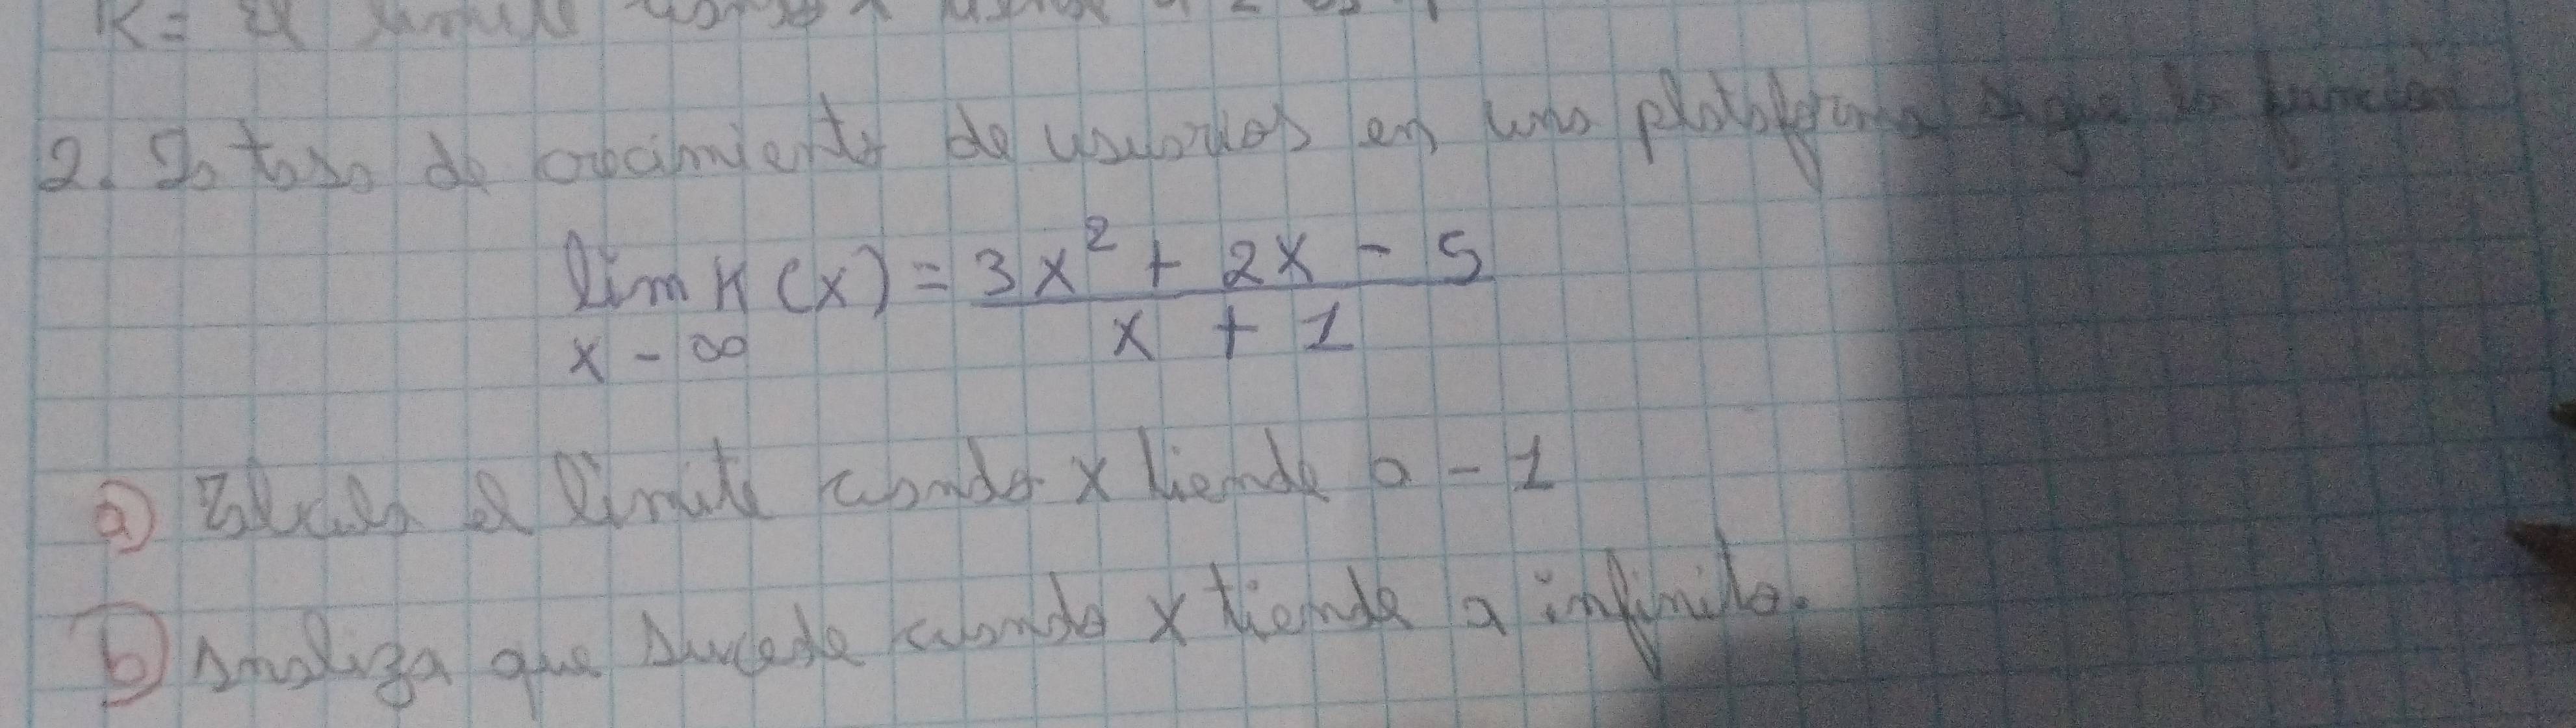 K= El limite cuando x tiende a 2 es
2. La tasa de crecimiento de usuarios en una plataforma sigue la función
lim K(x) = 3x² + 2x - 5
x - ∞ x + 1
a) Calcula el limite cuando x tiende a -1
b) Analiza que sucede cuando x tiende a infinito.